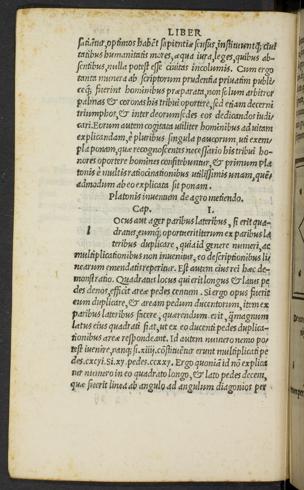 LIBER
satiãtur, optimos habẽt sapientiæ sensus, instituuntq; ciui
tatibus humanitatis mores, æqua iura, leges, quibus ab-
sentibus, nulla potest esse ciuitas incolumis. Cum ergo
tanta munera ab scriptorum prudentia priuatim publi-
ceq; fuerint hominibus præparata, non solum arbitror
palmas & coronas his tribui oportere, sed etiam decerni
triumphos, & inter deorum sedes eos dedicandos iudi-
cari. Eorum autem cogitata utiliter hominibus ad uitam
explicandam, è pluribus singula paucorum, uti exem-
pla ponam, quæ recognoscentes necessario his tribui ho-
nores oportere homines confitebuntur, & primum pla
tonis è multis ratiocinationibus utilissimis unam, quẽ
admodum ab eo explicata sit ponam.
Platonis inuentum de agro metiendo.
Cap. I.
Locus aut ager paribus lateribus, si erit qua-
dratus, eumq; oportuerit iterum ex paribus la
teribus duplicare, quia id genere numeri, ac
multiplicationibus non inuenitur, eo descriptionibus li
nearum emendatis reperitur. Est autem eius rei hæc de-
monstratio. Quadratus locus qui erit longus & latus pe
des denos, efficit areæ pedes centum. Si ergo opus fuerit
eum duplicare, & aream pedum ducentorum, item ex
paribus lateribus facere, quærendum erit, q̃ magnum
latus eius quadrati fiat, ut ex eo ducenti pedes duplica-
tionibus areæ respondeant. Id autem numero nemo po-
test inuenire, namq; si .xiiij. cõstituẽtur erunt multiplicati pe
des .cxcvi. Si .xv. pedes .ccxxv. Ergo quoniã id nõ explica
tur numero in eo quadrato longo, & lato pedes decem,
quæ fuerit linea ab angulo ad angulum diagonios per